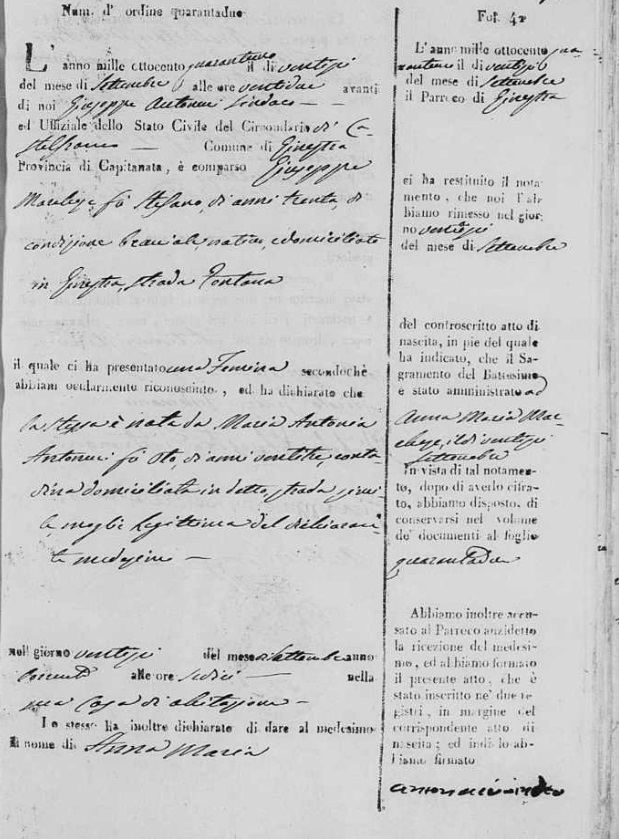 Num. d' ordine quarantadue
L' anno mille ottocento quarantuno il di ventisei
del mese di Settembre alle ore ventidue avanti
di noi Giuseppe Antonucci Sindaco
ed Uffiziale dello Stato Civile del Circondario di Ca
stelfranco Comune di Ginestra
Provincia di Capitanata, è comparso Giuseppe
fù Stefano, di anni trenta, di
condizione bracciale, nativo, e domiciliato
in Ginestra, strada Fontana
il quale ci ha presentato una Femina secondochè
abbiam ocularmente riconosciuto, ed ha dichiarato che
la stessa è nata da Maria Antonia
Antonucci fù Vito, di anni ventitre, conta
dina domiciliata in detta strada
moglie legittima del dichiaran
te medesimo
nell giorno ventisei del mese di Settembre anno
corrente alle ore sedici nella
sua Casa di abitazione
Lo stesso ha inoltre dichiarato di dare al medesimo
il nome di Anna Maria
Fol. 42
L' anno mille ottocento qua
rantuno il di ventisei
del mese di Settembre
il Parroco di Ginestra
ci ha restituito il nota-
mento, che noi l' ab-
biamo rimesso nel gior-
no ventisei
del mese di Settembre
del controscritto atto di
nascita, in pie del quale
ha indicato, che il Sa-
gramento del Battesimo
è stato amministrato ad
Anna Maria
il di ventisei
Settembre
In vista di tal notamen-
to, dopo di averlo cifra-
to, abbiamo disposto, di
conservarsi nel volume
de' documenti al foglio
quarantadue
Abbiamo inoltre accu-
sato al Parroco anzidetto
la ricezione del medesi-
mo, ed abbiamo formato
il presente atto, che è
stato inscritto ne' due re-
gistri, in margine del
corrispondente atto di
nascita; ed indi lo ab-
biamo firmato